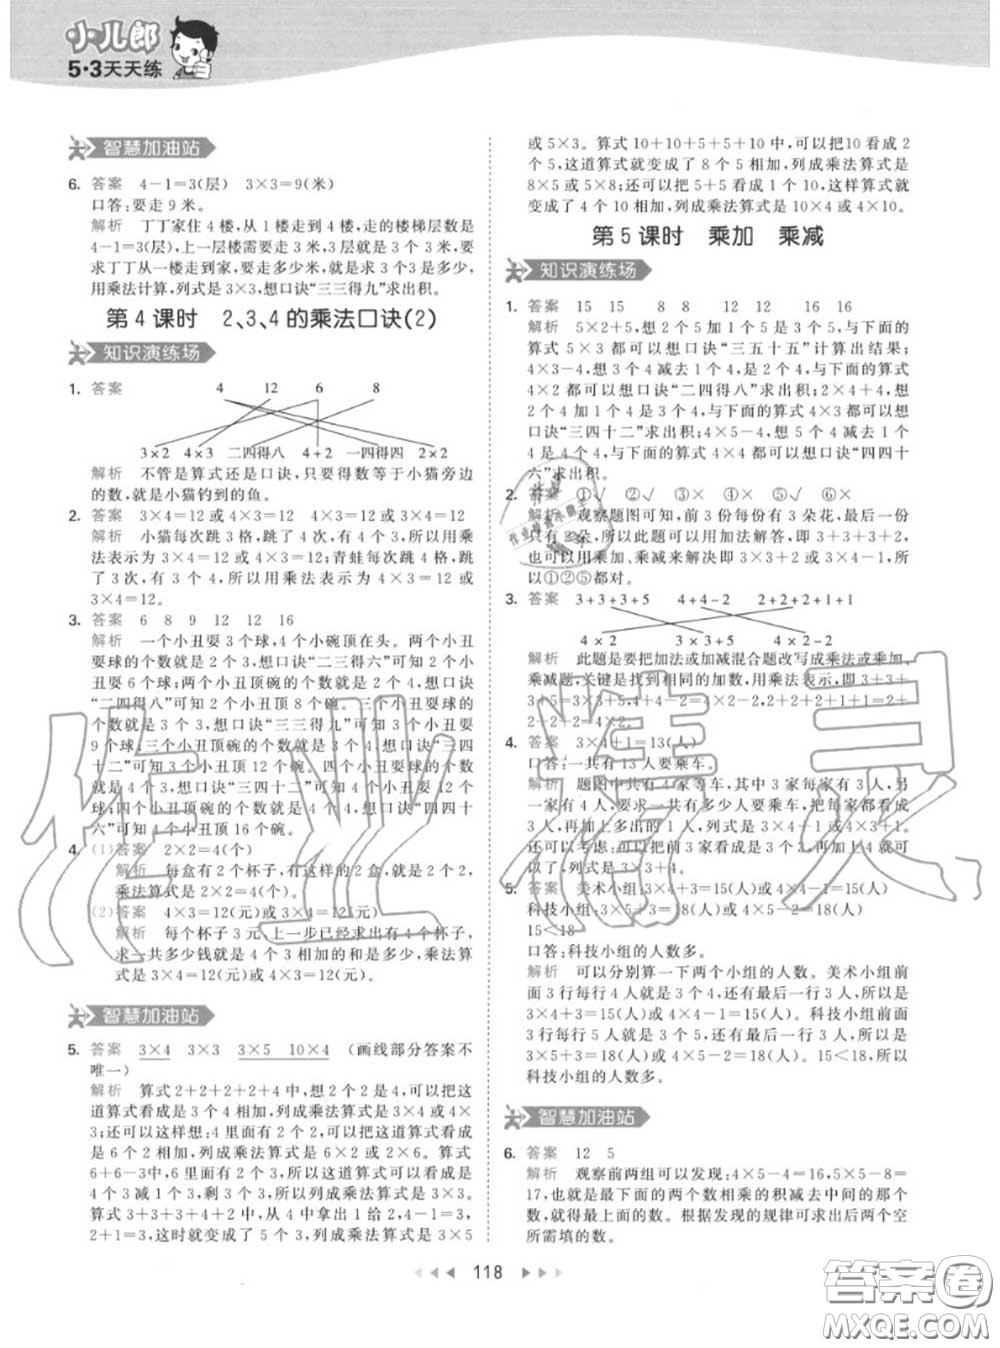 小儿郎
5·3天天练
智慧加油站
6. 答案 4－1=3(层) 3×3=9(米)
口答:要走 9 米。
解析 丁丁家住 4 楼,从 1 楼走到 4 楼,走的楼梯层数是
4－1=3(层),上一层楼需要走 3 米,3 层就是 3 个 3 米,要
求丁丁从一楼走到家,要走多少米,就是求 3 个 3 是多少,
用乘法计算,列式是 3×3,想口诀“三三得九”求出积。
第 4 课时 2、3、4 的乘法口诀(2)
知识演练场
1. 答案 4 12 6 8
3×2 4×3 二四得八 4+2 一四得四 2×2
解析 不管是算式还是口诀,只要得数等于小猫旁边
的数,就是小猫钓到的鱼。
2. 答案 3×4=12 或 4×3=12 4×3=12 或 3×4=12
解析 小猫每次跳 3 格,跳了 4 次,有 4 个 3,所以用乘
法表示为 3×4=12 或 4×3=12;青蛙每次跳 4 格,跳
了 3 次,有 3 个 4,所以用乘法表示为 4×3=12 或
3×4=12。
3. 答案 6 8 9 12 12 16
解析 一个小丑要 3 个球,4 个小碗顶在头。两个小丑
要的个数就是 2 个 3,想口诀“二三得六”可知 2 个小丑
要 6 个球;两个小丑顶碗的个数就是 2 个 4,想口诀
“二四得八”可知 2 个小丑顶 8 个碗。三个小丑要球的
个数就是 3 个 3,想口诀“三三得九”可知 3 个小丑要
9 个球;三个小丑顶碗的个数就是 3 个 4,想口诀“三四
十二”可知 3 个小丑顶 12 个碗。四个小丑要球的个数
就是 4 个 3,想口诀“三四十二”可知 4 个小丑要
12 个球;四个小丑顶碗的个数就是 4 个 4,想口诀“四四十
六”可知 4 个小丑顶 16 个碗。
4. (1)答案 2×2=4(个)
解析 每盒有 2 个杯子,有这样的 2 盒,就是 2 个 2,
乘法算式是 2×2=4(个)。
(2)答案 4×3=12(元)或 3×4=12(元)
解析 每个杯子 3 元,上一步已经求出共有 4 个杯子,
求一共多少钱就是 4 个 3 相加的和是多少,乘法算
式是 3×4=12(元)或 4×3=12(元)。
智慧加油站
5. 答案 3×4 3×3 3×5 10×4 (画线部分答案不
唯一)
解析 算式 2+2+2+2+4 中,想 2 个 2 是 4,可以把这
道算式看成是 3 个 4 相加,列成乘法算式是 3×4 或 4×
3;还可以这样想:4 里面有 2 个 2,可以把这道算式看成
是 6 个 2 相加,列成乘法算式是 6×2 或 2×6。算式
6+6－3中,6 里面有 2 个 3,所以这道算式可以看成是
4 个 3 减 1 个 3,剩 3 个 3,所以列成乘法算式是 3×3。
算式 3+3+3+4+2 中,从 4 中拿出 1 给 2,4－1=3,
2+1=3,这时就变成了 5 个 3 相加,列成乘法算式是 3×5
或 5×3。算式 10+10+5+5+10 中,可以把10 看成 2
个 5,这道算式就变成了 8 个 5 相加,列成乘法算式是
8×5 或 5×8;还可以把 5+5 看成 1 个 10,这样算式就
变成了 4 个 10 相加,列成乘法算式是 10×4 或 4×10。
第 5 课时 乘加 乘减
知识演练场
1. 答案 15 15 8 8 12 12 16 16
解析 5×2+5,想 2 个 5 加 1 个 5 是 3 个 5,与下面的
算式 5×3 都可以想口诀“三五十五”计算出结果;
4×3－4,想 3 个 4 减去 1 个 4,是 2 个 4,与下面的算式
4×2 都可以想口诀“二四得八”求出积;2×4+4,想
2 个 4 加 1 个 4 是 3 个 4,与下面的算式 4×3 都可以想
口诀“三四十二”求出积;4×5－4,想 5 个 4 减去 1 个
4 是 4 个 4,与下面的算式 4×4 都可以想口诀“四四十
六”求出积。
2. 答案 ①√ ②√ ③× ④× ⑤√
解析 观察题图可知,前 3 份每份有 3 朵花,最后一份
只有 2 朵,所以可以用加法解答,即 3+3+3+2,
也可以用乘加、乘减来解决即 3×3+2 或 3×4－1,所
以①②⑤都对。
3. 答案 3+3+3+5 4+4－2 2+2+2+1+1
4×2 3×3+5 4×2－2
解析 此题是要把加法或加减混合题改写成乘法或乘加、
乘减题,关键是找到相同的加数,用乘法表示,即 3+3+
3+5=3×3+5,4+4－2=4×2－2,2+2+2+1+1=
2+2+2+2=4×2。
4. 答案 3×4+1=13(人)
口答:一共有 13 人要乘车。
解析 题图中共有 4 家等车,其中 3 家每家有 3 人,另
一家有 4 人,要求一共有多少人要乘车,可以把每家都看成
3 人,再加上多出的 1 人,列式是 3×4+1 或 4×3+1,
还可以这样考虑:可以把前 3 家看成是 3 个 3 人,再加上 4 就可
以了,列式是 3×3+4。
5. 答案 美术小组:3×4+3=15(人)或 4×4－1=15(人)
科技小组:3×5+3=18(人)或 4×5－2=18(人)
15＜18
口答:科技小组的人数多。
解析 可以分别算一下两个小组的人数。美术小组前
面 3 行每行 4 人就是 3 个 4,还有最后一行 3 人,所以是
3×4+3=15(人)或 4×4－1=15(人)。科技小组前面
3 行每行 5 人就是 3 个 5,还有最后一行 3 人,所以是
3×5+3=18(人)或 4×5－2=18(人)。15＜18,所以
科技小组的人数多。
智慧加油站
6. 答案 12 5
解析 观察前两组可以发现:4×5－4=16,5×5－8=
17,也就是最下面的两个数相乘的积减去中间的那个
数,就得最上面的数。根据发现的规律可求出后两个空
所需填的数。
118
作业精灵
答案圈
MXQE.COM